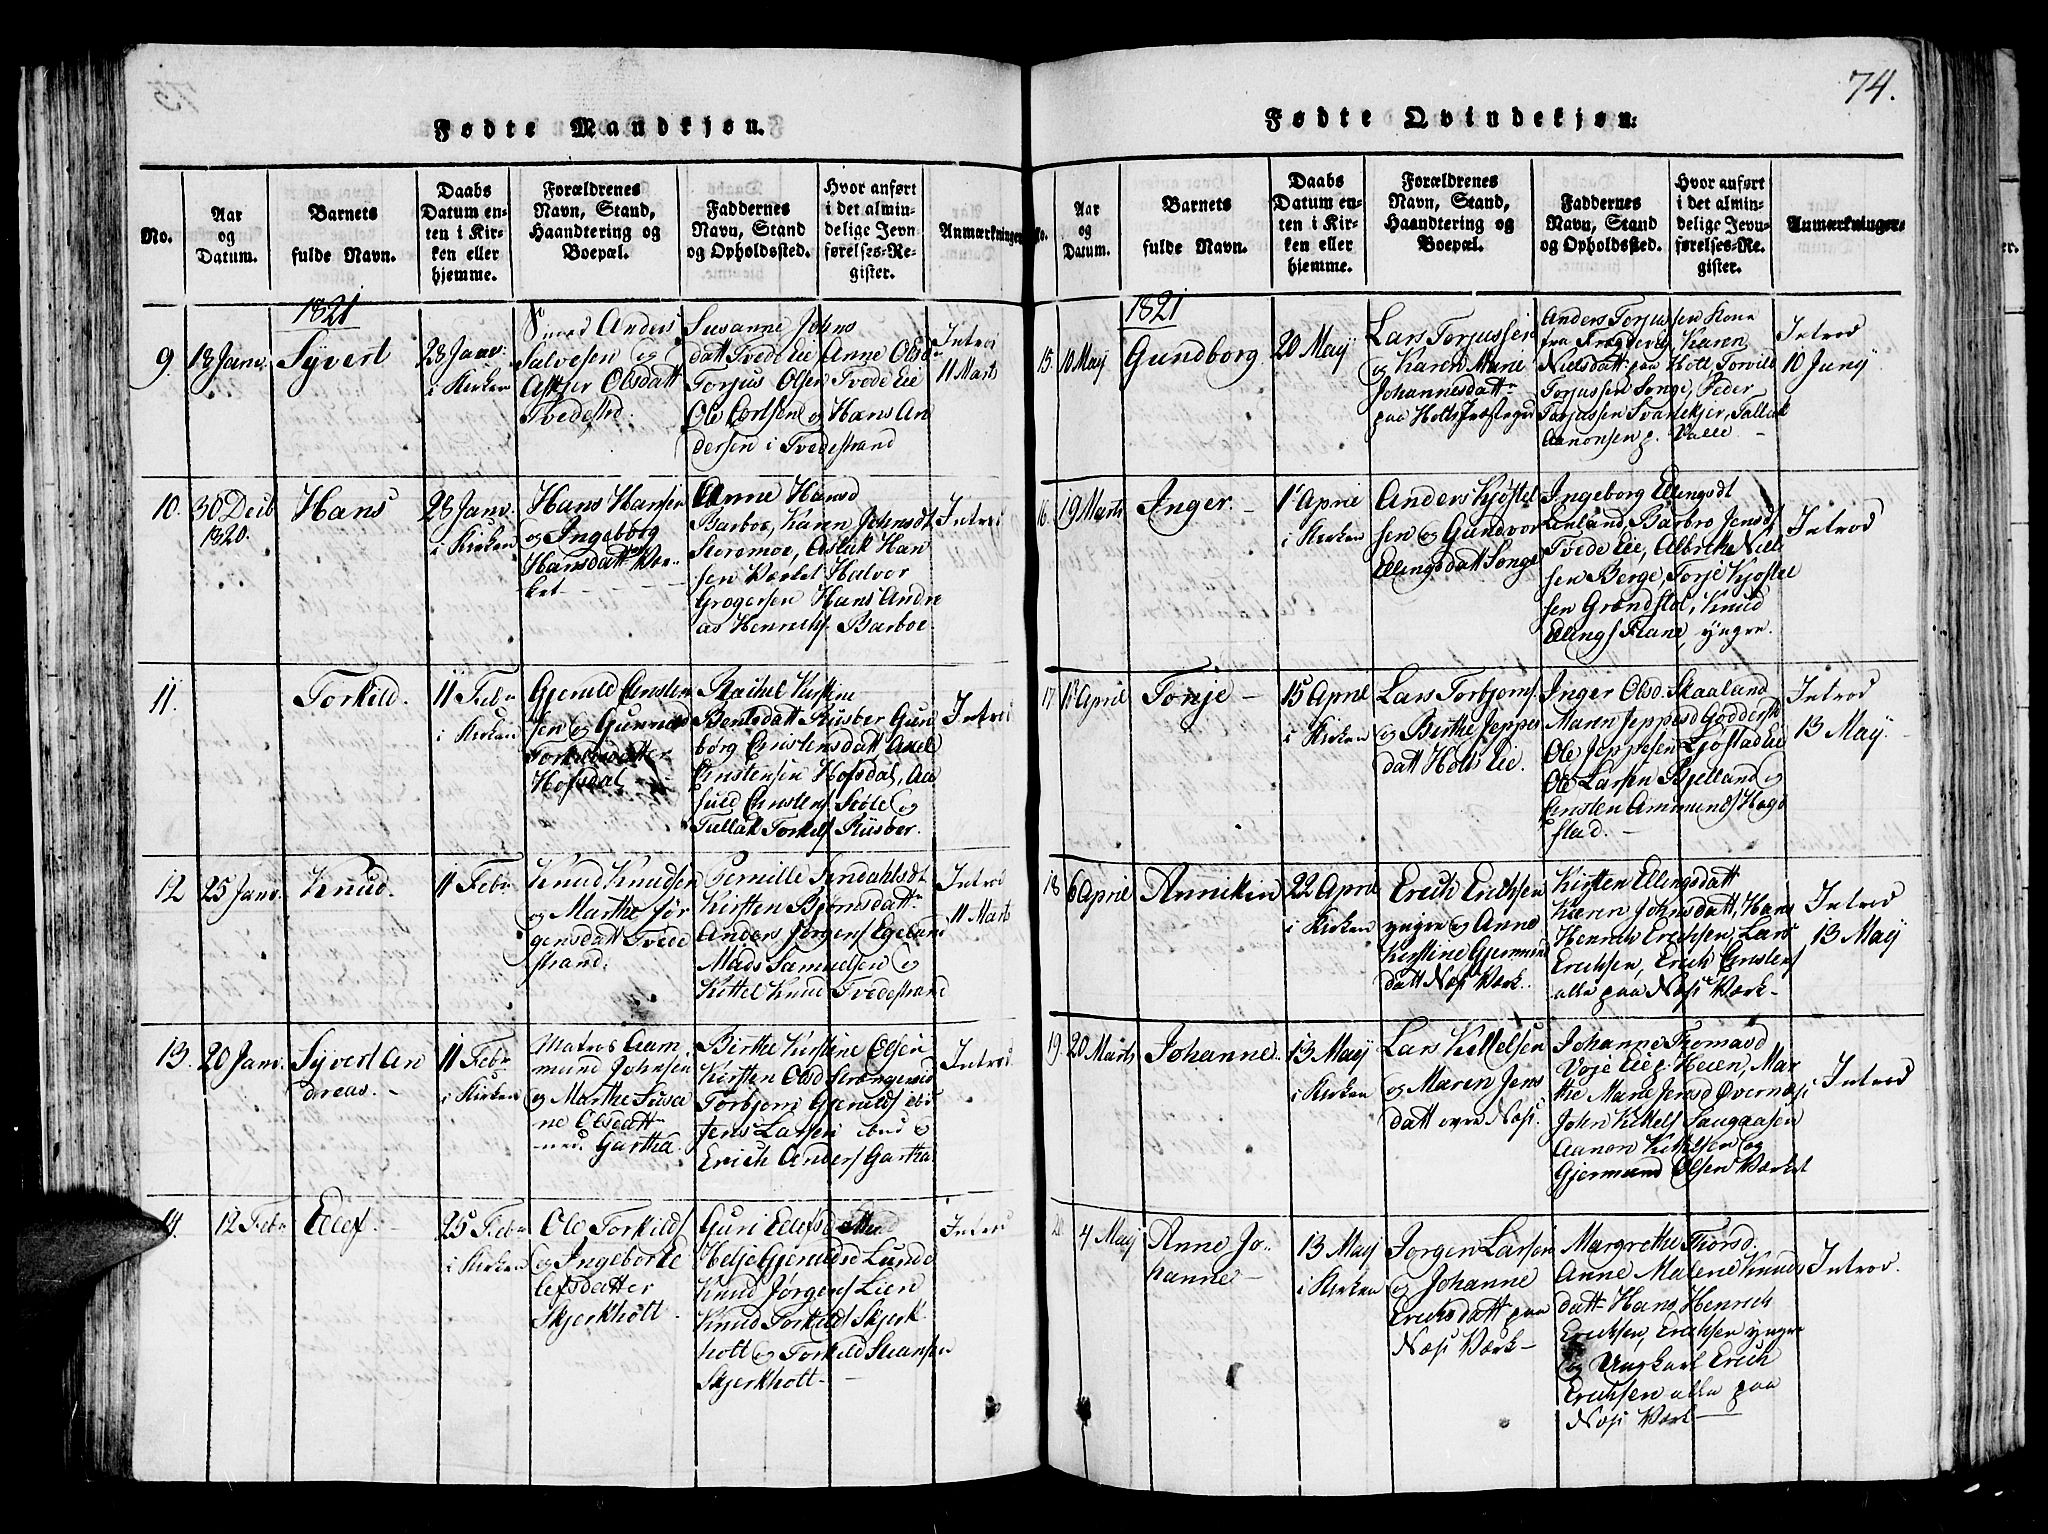 74.
Fødte Mandkjøn.
No.
Aar
og
Datum.
Barnets
fulde Navn.
Daabs
Datum en-
ten i Kir-
ken eller
hjemme.
Forældrenes
Navn, Stand,
Haandtering og
Boepæl.
Faddernes
Navn, Stand
og Opholdssted.
Hvor anført
i det almin-
delige Jevn
førelses-Re-
gister.
Anmærkninger
1821
9.
18 Janv.
Syvert
28 Janv.
i Kirken
Anders
Salvesen og
Olsdatt
Tvedestrd.
Susanne Johns
datt Tvede Eie Anne Olsd
Torjus Olsen Tvede Eie
Ole og Hans An
dersen i Tvedestrand
Introd
11 Marts
10.
30 Decb
1820.
Hans
28 Janv.
i Kirken
Hans Hansen
og Ingeborg
Hansdatt Vær-
ket
Anne Hansd
Barboe, Karen Johnsdt
Storemoe, Aslak Han
sen Værket Halvor
Grogersen Hans Andre
as Henrichs. Barboe
Introd
11.
Torkild.
11 Febr
i Kirken
Gjeruld Christen
sen og Gunnild
Torkildsdatter
Hofsdal
Rachel Kirstine
Bentsdatt Riisber Gun
borg Christensdatt Axel
Christensen Hofsdal, Aa
suld Christens Støle og
Tallak Torkels Riisber.
Introd
12
25 Janv.
Knud.
11 Febr
Knud Knudsen
og Marthe Jør
gensdatt Tvede
strand.
Pernille Sendahlsdt
Kirsten Bjørnsdatt
Anders Jørgens Egeland
Mads Samuelsen og
Kittel Knud Tvedestrand
Introd
11 Marts
13.
20 Janv.
Syvert An
dreas.
11 Febr
i Kirken
Matros Aam
mund Johnsen
og Marthe Susa
ne Olsdatt
Gartha.
Birthe Kirstine Olsen
Kirsten Olsd Strengereid
Torbjørn Gjerulds
Jens Larsen
Erich Anders Gartha.
Introd
14.
12 Febr
Ellef.
25 Febr
i Kirken
Ole Torkilds
og Ingebor El
lefsdatter
Skjerkholt
Guri Ellefsd
Helje Gjeruldsd Lunde
Knud Jørgens Lien
Knud Torkilds Skjerk
holt og Torkild
Skjerkholt
Introd
Fødte Qvindekjøn.
No.
Aar
og
Datum.
Barnets
fulde Navn.
Daabs
Datum en-
ten i Kir-
ken eller
hjemme.
Forældrenes
Navn, Stand,
Haandtering og
Boepæl.
Faddernes
Navn, Stand
og Opholdssted.
Hvor anført
i det almin-
delige Jevn-
førelses-Re-
gister.
Anmærkninger
1821
15.
10 May
Gundborg
20 May
Lars Torjussen
og Karen Marie
Johannesdatt
paa Holts Præstegrd
Anders Torjussen Kone
fra Karen
Nielsdatt paa Holt Torvild
Torjussen Songe, Peder
Torjussen Svartekjer, Tallak
Aanonsen p. Valle
Introd
10 Juny
16.
19 Marts
Inger.
1 April
i Kirken
Anders Kjøstel
sen og Gundvor
Ellingsdatt Songe
Ingeborg Ellingsdt
Barbro Jensd
Tvede Eie, Albrethe Niel
sen Berge, Torje Kjøstel
sen Grændstøl, Knud
Ellings Flane, yngre.
Introd
17.
April
Tonje
15 April
i Kirken
Lars Torbjørns.
og Birthe Jeppes
datt Holts Eie.
Inger Olsd. Skaaland
Maren Jeppesd
Ole Jeppesen Ljøstad Eie
Ole Larsen Kjelland og
Christen Ammunds Hage
stad.
Introd
13 May
18
6 April
Anniken
22 April
i Kirken
Erich Erichsen
yngre og Anne
Kirstine Gjermund
datt Næs Værk.
Kirsten Ellingsdatt
Karen Johnsdatt, Hans
Henrich Erichsen, Lars
Erichsen, Erich Christens
alle paa Næs Værk
Introd
13 May
19.
20 Marts
Johanne.
13 May
i Kirken
Lars Kittelsen
og Maren Jens
datt øvre Næs.
Johanne Thomasd
Voje Eie p. Heien, Mar
the Marie Jensd Øvernæs
John Kittels Saugaasen
Aanon Kittelsen og
Gjermund Olsen Værket
Introd
20
4 May
Anne Jo-
hanne
13 May
i Kirken
Jørgen Larsen
og Johanne
Erichsdatt paa
Næs Værk
Margrethe Thorsd.
Anne Malene Knuds
datt Hans Henrich
Erichsen, Erichsen yngre
og Ungkarl Erich
Erichsen alle paa
Næs Værk
Introd.